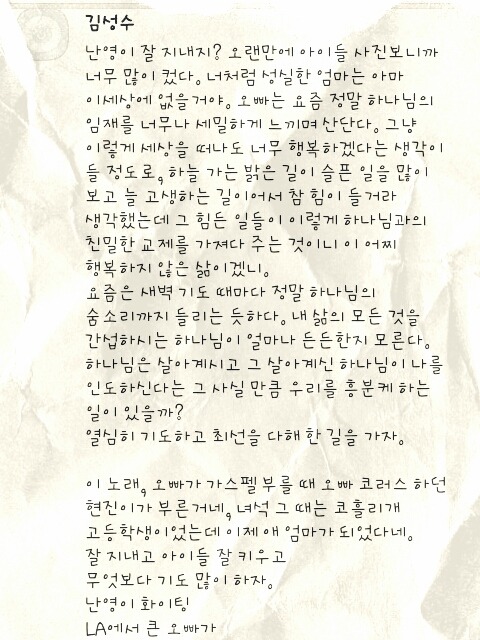 김성수
난영이 잘 지내지? 오랜만에 아이들 사진보니까
너무 많이 컸다. 너처럼 성실한 엄마는 아마
이세상에 없을거야. 오빠는 요즘 정말 하나님의
임재를 너무나 세밀하게 느끼며 산단다. 그냥
이렇게 세상을 떠나도 너무 행복하겠다는 생각이
들 정도로, 하늘 가는 밝은 길이 슬픈 일을 많이
보고 늘 고생하는 길이어서 참 힘이 들거라
생각했는데 그 힘든 일들이 이렇게 하나님과의
친밀한 교제를 가져다 주는 것이니 이 어찌
행복하지 않은 삶이겠니.
요즘은 새벽 기도 때마다 정말 하나님의
숨소리까지 들리는 듯하다. 내 삶의 모든 것을
간섭하시는 하나님이 얼마나 든든한지 모른다.
하나님은 살아계시고 그 살아계신 하나님이 나를
인도하신다는 그 사실 만큼 우리를 흥분케 하는
일이 있을까?
열심히 기도하고 최선을 다해 한 길을 가자.
이 노래, 오빠가 가스펠 부를 때 오빠 코러스 하던
현진이가 부른거네, 녀석 그 때는 코흘리개
고등학생이었는데 이제 애 엄마가 되었다네.
잘 지내고 아이들 잘 키우고
무엇보다 기도 많이 하자.
난영이 화이팅
LA에서 큰 오빠가